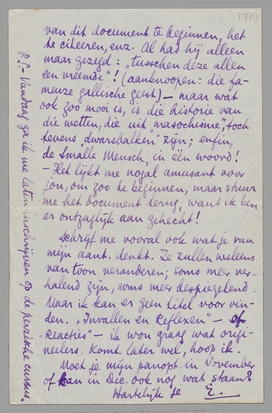 van dit document te beginnen, het
te citeeren, enz. Al had hij alleen
maar gezegd: "tusschen déze alleen
een vreemde"! (aanknoopen: die fa-
meuze gallische geest) – maar wat
ook zoo mooi is, is die historie van
die wetten, die uit "masochisme", toch
tevens "dwarsbalken" zijn; enfin,
de Smalle Mensch, in één woord!
– Het lijkt me nogal amusant voor
jou, om zoo te beginnen, maar stuur
me het document terug, want ik ben
er ontzaglijk aan gehecht!
Schrijf me vooral ook wat je van
mijn aant. denkt. Ze zullen weleens
van toon veranderen; soms meer ver-
halend zijn, soms meer bespiegelend.
Maar ik kan er geen titel voor vin-
den. "Invallen en Reflexen" – of
Reacties" – ik won graag wat origi-
neelers. Komt later wel, hoop ik.
Moet je mijn panopt. in November
of kan in Dec. ook nog wat staan?
Hartelijk je E.
P.S. – Vandaag ga ik me laten inschrijven op de perzische cursus.